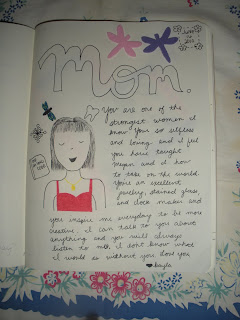 Mom.
You are one of the
strongest women I
know. Your so selfless
and loving and I feel
you have taught
Megan and I how
to take on the world.
Your an excellent
jewelry, stained glass,
and clock maker and
you inspire me everyday to be more
creative. I can talk to you about
anything and you will always
listen to me. I don't know what
I would do without you. Love you
Kayla